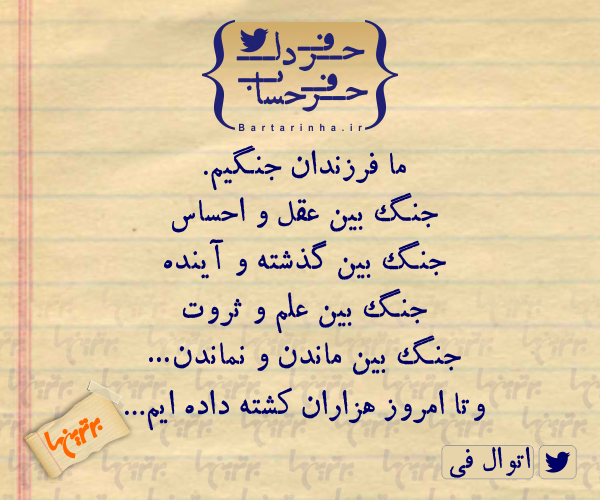 حرف دل
حرف حساب
Bartarinha.ir
ما فرزندان جنگیم.
جنگ بین عقل و احساس
جنگ بین گذشته و آینده
جنگ بین علم و ثروت
جنگ بین ماندن و نماندن...
و تا امروز هزاران کشته داده ایم...
برترین‌ها
اتوال فی